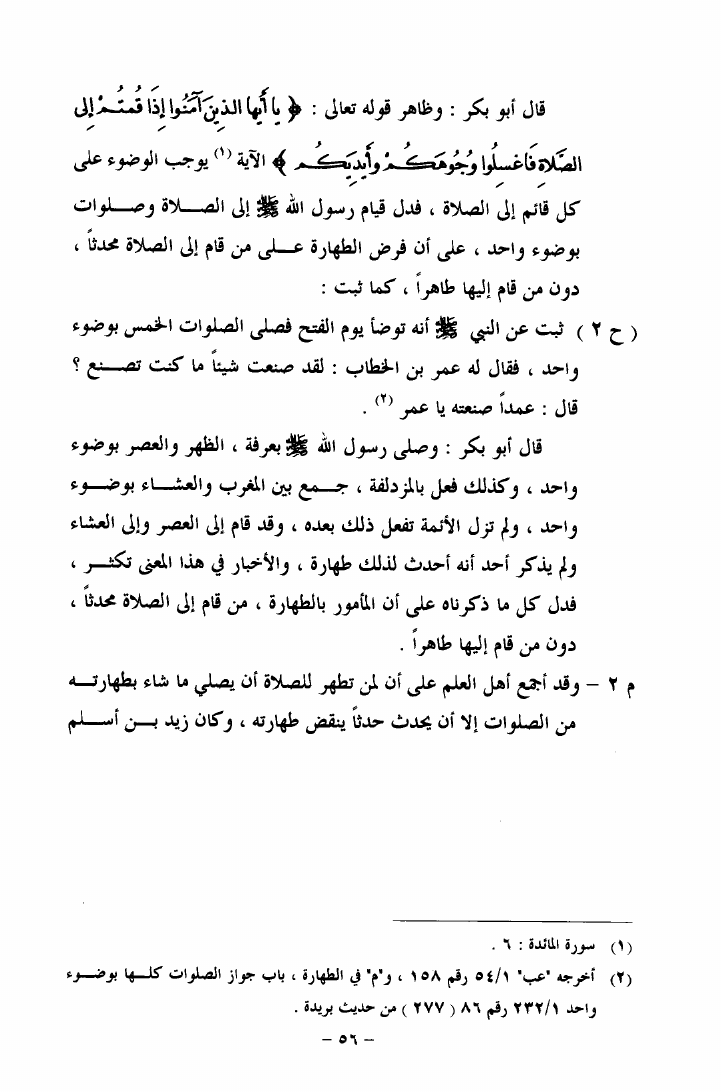 قال أبو بكر : وظاهر قوله تعالى : ﴿ يا أَيها الذين آمَنُوا إِذَا قُمتُمْ إلى
الصَّلاةِ فَاغسِلُوا وُجُوهَكُمْ وأيدِيَكُم ﴾ الآية (١) يوجب الوضوء على
كل قائم إلى الصلاة ، فدل قيام رسول الله ﷺ إلى الصــلاة وصــلوات
بوضوء واحد ، على أن فرض الطهارة عــلى من قام إلى الصلاة محدثاً ،
دون من قام إليها طاهراً ، كما ثبت :
( ح ٢ ) ثبت عن النبي ﷺ أنه توضأ يوم الفتح فصلى الصلوات الخمس بوضوء
واحد ، فقال له عمر بن الخطاب : لقد صنعت شيئاً ما كنت تصــنع ؟
قال : عمداً صنعته يا عمر (٢) .
قال أبو بكر : وصلى رسول الله ﷺ بعرفة ، الظهر والعصر بوضوء
واحد ، وكذلك فعل بالمزدلفة ، جــمع بين المغرب والعشــاء بوضــوء
واحد ، ولم تزل الأئمة تفعل ذلك بعده ، وقد قام إلى العصر وإلى العشاء
ولم يذكر أحد أنه أحدث لذلك طهارة ، والأخبار في هذا المعنى تكثــر ،
فدل كل ما ذكرناه على أن المأمور بالطهارة ، من قام إلى الصلاة محدثاً ،
دون من قام إليها طاهراً .
م ٢ – وقد أجمع أهل العلم على أن لمن تطهر للصلاة أن يصلي ما شاء بطهارتــه
من الصلوات إلا أن يحدث حدثاً ينقض طهارته ، وكان زيد بــن أســلم
(١) سورة المائدة : ٦ .
(٢) أخرجه "عب" ٥٤/١ رقم ١٥٨ ، و"م" في الطهارة ، باب جواز الصلوات كلــها بوضــوء
واحد ٢٣٢/١ رقم ٨٦ ( ٢٧٧ ) من حديث بريدة .
– ٥٦ –